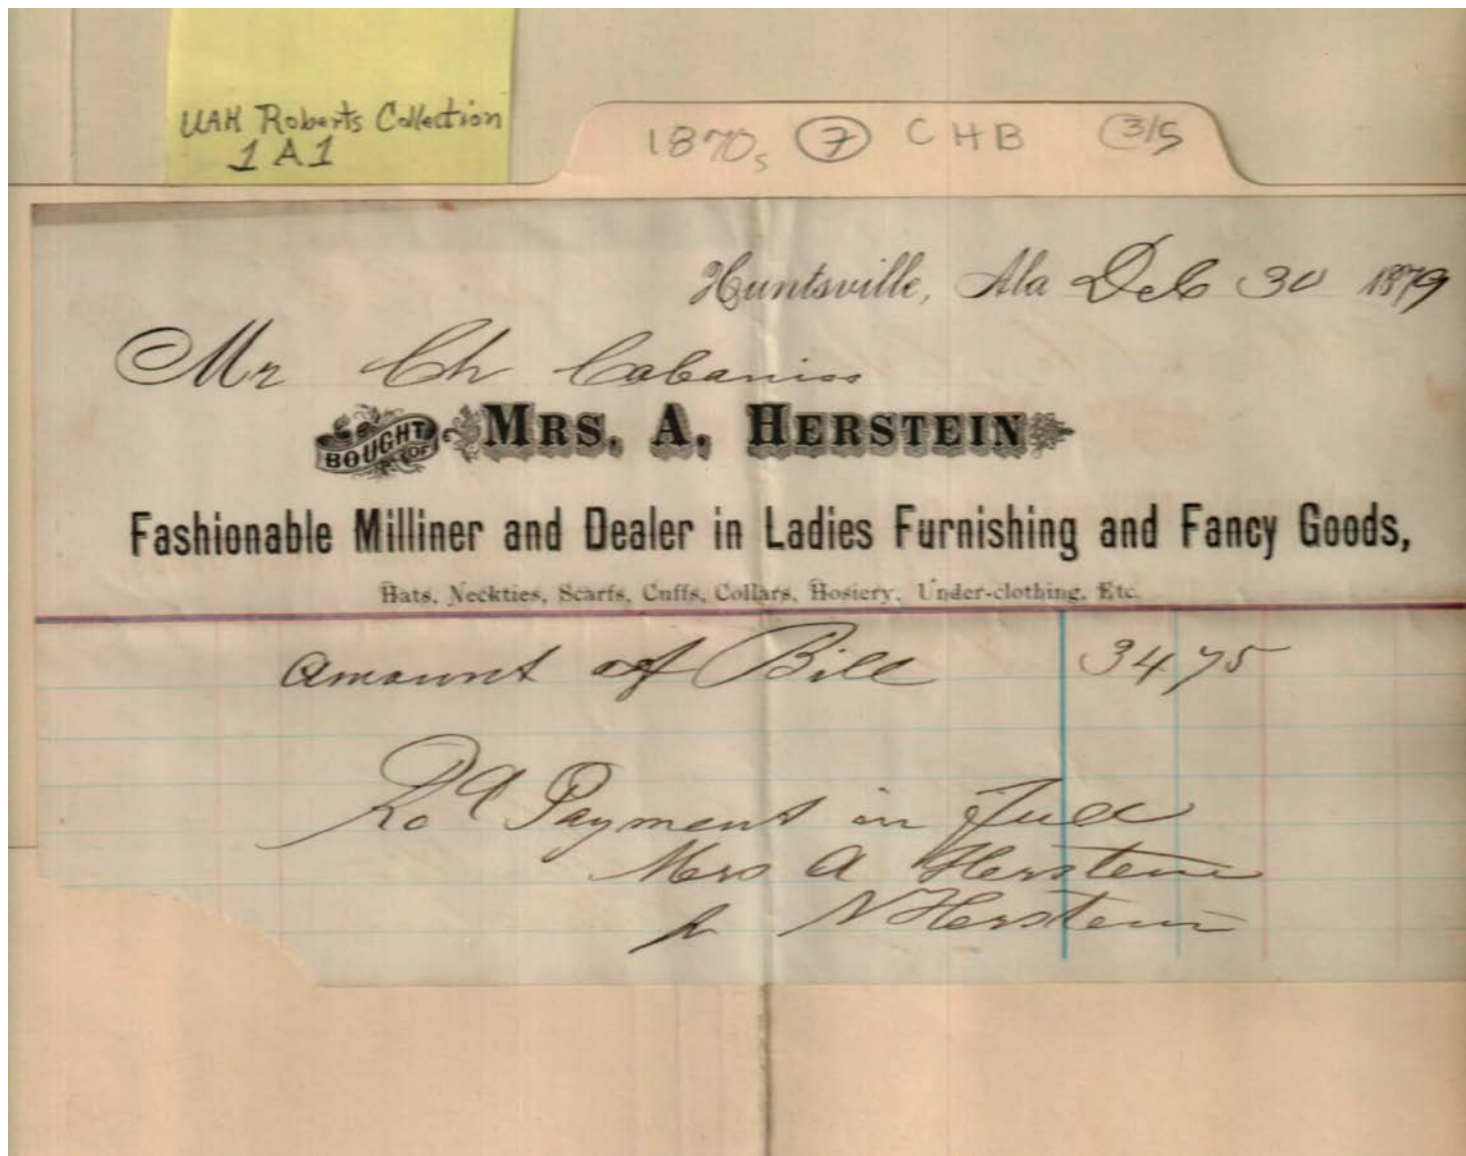 UAH Roberts Collection
1 A 1
1870s 7 CHB 3/5
Huntsville, Ala Dec 30 1879
Mr Ch Cabaniss
BOUGHT OF MRS. A. HERSTEIN
Fashionable Milliner and Dealer in Ladies Furnishing and Fancy Goods,
Hats, Neckties, Scarfs, Cuffs, Collars, Hosiery, Under-clothing, Etc.
Amount of Bill 34 75
Payment in Full
Mrs A Herstein
N Herstein